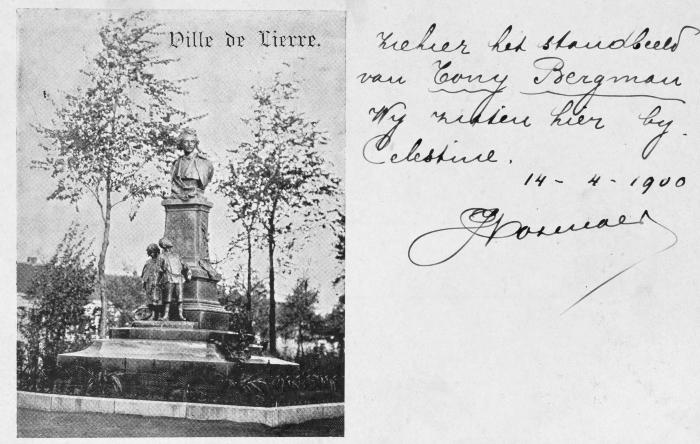 Ville de Lierre.
ziehier het standbeeld
van Tony Bergman
Wy zitten hier by
Celestine.
14 - 4 - 1900